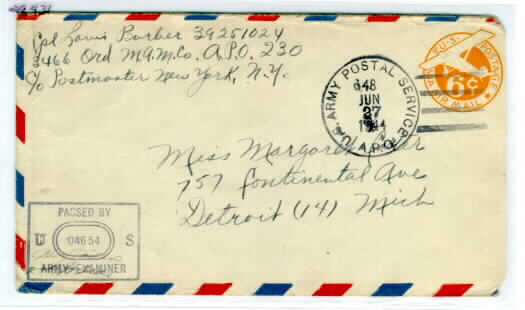 Cpl Louis Barber 39251024
3466 Ord M.A.M.Co. A.P.O. 230
C/o Postmaster New York, N.Y.
U.S. POSTAGE
6¢
AIR MAIL
U.S. ARMY POSTAL SERVICE
648
JUN
27
1944
A.P.O.
Miss Margaret
757 Continental Ave
Detroit (14) Mich
PASSED BY
U 04654 S
ARMY EXAMINER